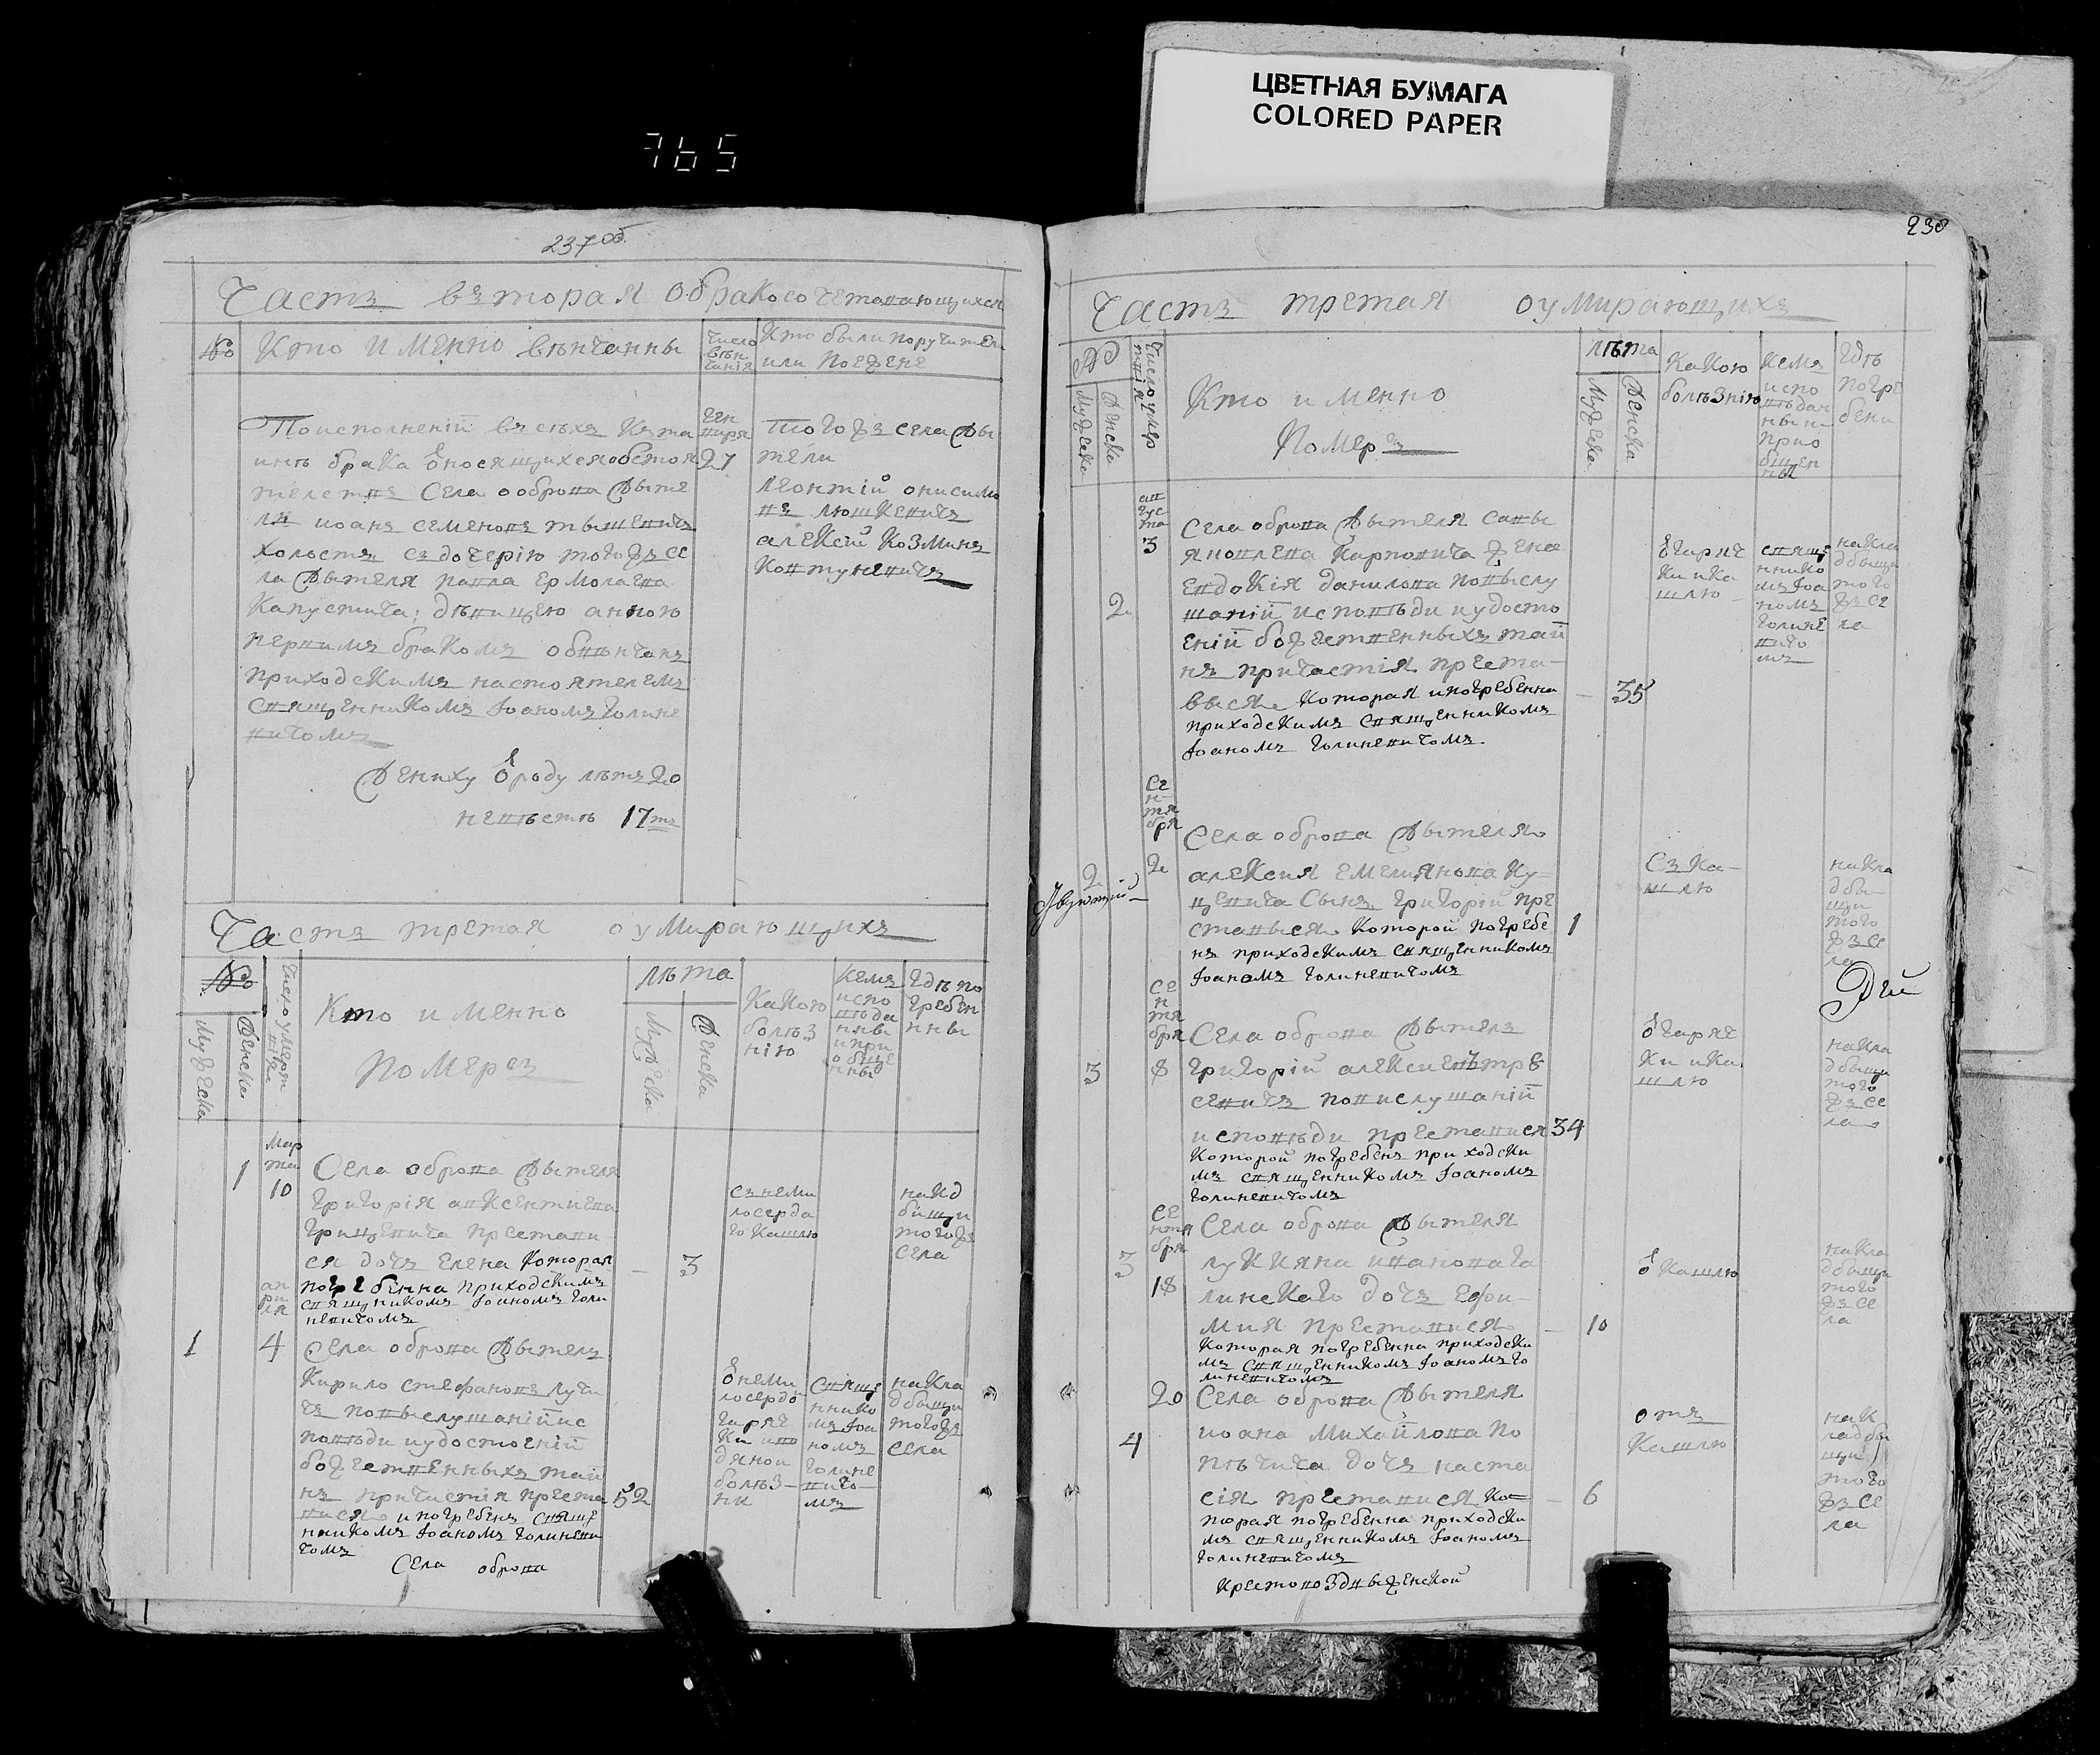 ЦВЕТНАЯ БУМАГА
COLORED PAPER
765
237об.
Часть вторая о бракосочетавающихся
№
Кто именно венчанны
Число вѣнчанія
Кто были поручители
или поезжене
По исполненіи въ сѣхъ
инѣ брака
Села оброва жите
ля иоанъ семеновъ
холостъ съ дочерію тогожъ се
ла жителя павла ермолаева
Капустича: дѣвицею анною
первимъ бракомъ обвѣнчанъ
приходскимъ настоятелемъ
священникомъ Іоаномъ Голине
вичомъ
Жениху ѿ роду лѣтъ 20
невѣстѣ 17ть
генваря
27
Тогожъ села жи
тели
леонтій онисимо
въ люшкевичъ
алексій козминъ
Ковтуневичъ
Часть третая о умирающихъ
№
Мужеска
Женска
Число умертвія
Кто именно
Померъ
лѣта
Мужеска
Женска
Какою
болѣз
нію
Кемъ
испо
вѣда
нны
и при
обще
нны
Гдѣ по
гребен
нны
1
Мар
та
10
Села оброва жителя
Григорія авксентиева
Грицевича престави
ся дочъ елена которая
погребенна приходскимъ
священикомъ Іоаномъ Голи
невичомъ
3
наклд
бищи
тогожъ
села
1
ап
ри
ля
4
Села оброва житель
Кирило стефановъ лучи
чъ по выслушаніи ис
повѣди и удостоеніи
божественныхъ тай
нъ причистія преста
вися и погребенъ свяще
нникомъ Іоаномъ Голиневи
чомъ
52
священнико
мъ Іоа
номъ
Голине
вичо
мъ
накла
дбищи
тогожъ
села
Села оброва
238
Часть третая о умирающихъ
№
Мужеска
Женска
Число умертвія
Кто именно
Померъ
лѣта
Мужеска
Женска
Какою
болѣзнію
Кемъ
испо
вѣдан
ны и
прио
бщен
ны
Гдѣ
погре
бени
2
ав
гус
та
3
Села оброва жителя савы
яковлева Карповича жена
евдокія данилова по выслу
шаніи исповѣди и удосто
еніи божественныхъ тай
нъ причастія преста-
выся которая и погребенна
приходскимъ священникомъ
Іоаномъ Голиневичомъ.
35
ѿ гаряч
ки и ка
шлю
свяще
ннико
мъ Іоа
номъ
Голине
вичо
мъ
накла
дбищи
того
жъ се
ла
2
се
н-
тя
бря
2
Села оброва жителя
алексия емелиянова Ку-
цевича Сынъ григорій пре
ставыся которой погребе
нъ приходскимъ священникомъ
Іоаномъ Голиневичомъ
1
Съ ка-
шлю
накла
дби-
щи
того
жъ се
ла
3
се
н
тя
бря
8
Села оброва житель
григорій
по вислушаніи
исповѣди преставися
которой погребенъ приходски
мъ священникомъ Іоаномъ
Голиневичомъ
34
ѿ гаряч
ки и ка
шлю
накла
дбищи
того
жъ се
ла
3
се
нтя
бря
18
Села оброва жителя
лукияна иванова Га
линскаго дочъ ефи-
мия преставися
которая погребенна приходски
мъ священникомъ Іоаномъ Го
линевичомъ
10
ѿ кашлю
накла
дбищи
того
жъ се
ла
4
20
Села оброва жителя
иоана михайлова По
пѣчича дочъ наста
сія преставися ко-
торая погребенна приходски
мъ священникомъ Іоаномъ
Голиневичомъ
6
отъ
кашлю
нак
ладби
щи
того
жъ се
ла
Крестовоздвыженской